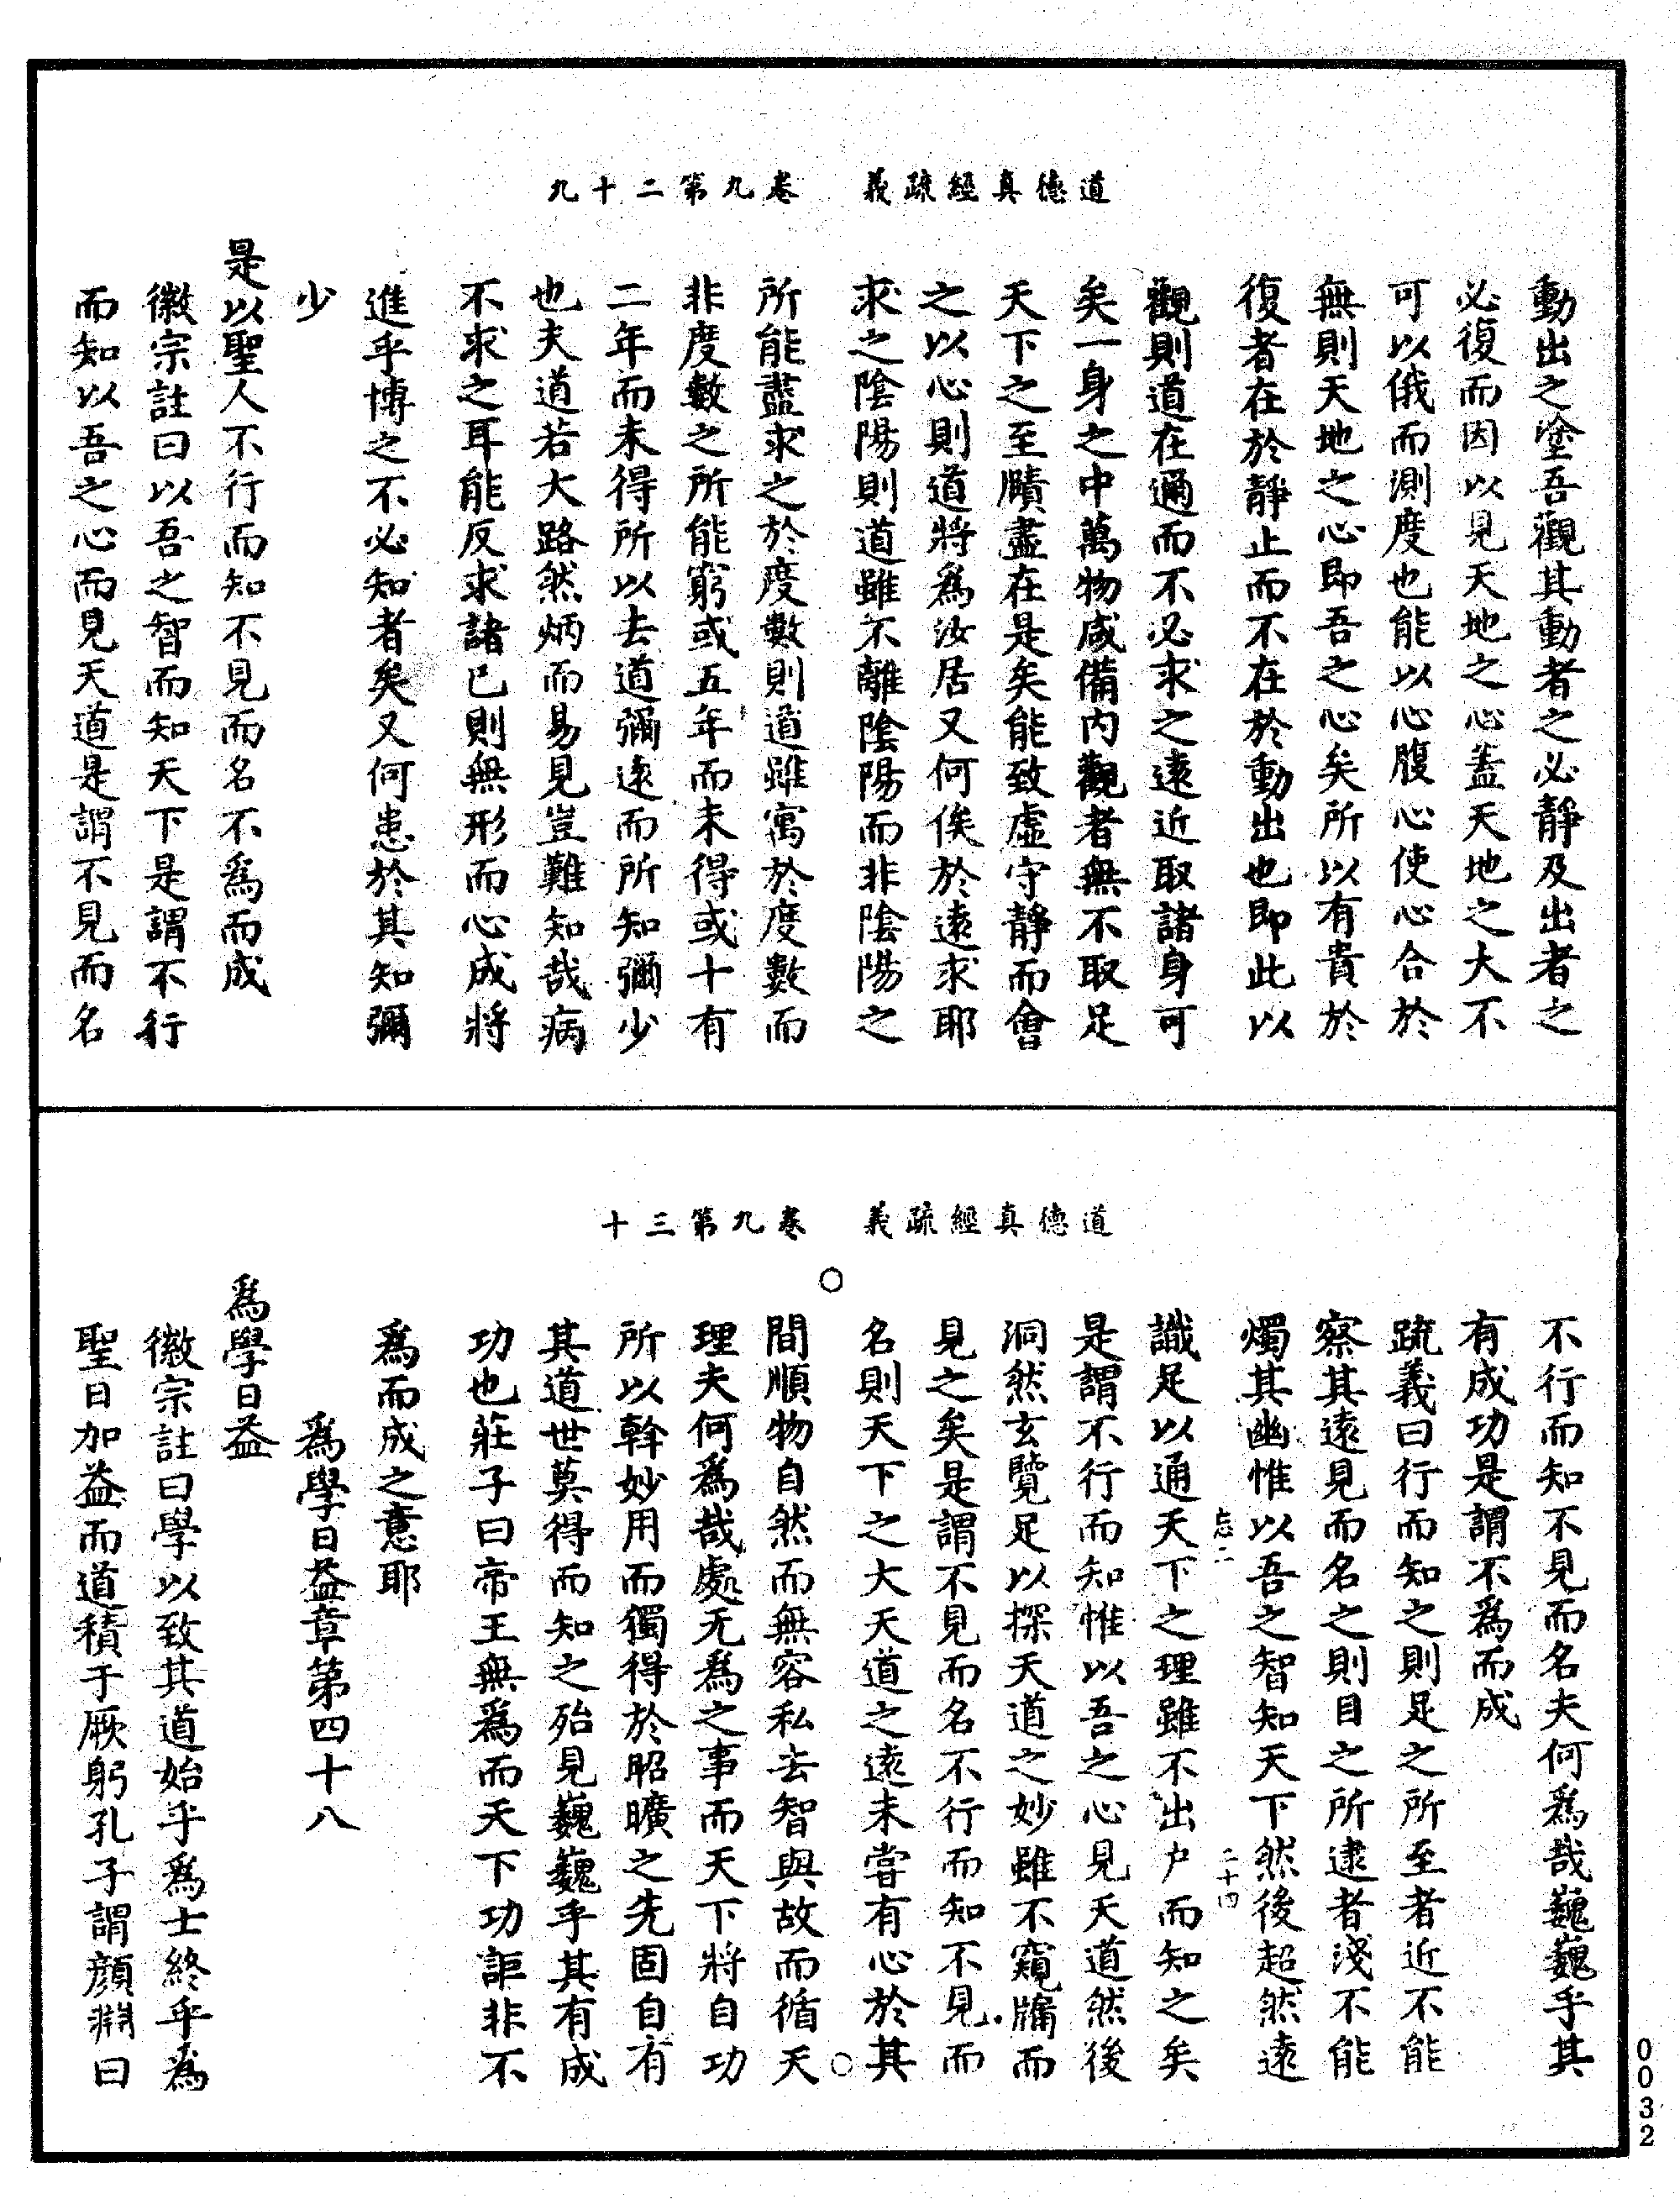 道德真經疏義　卷九第二十九
動出之塗吾觀其動者之必靜及出者之
必復而因以見天地之心盖天地之大不
可以俄而測度也能以心腹心使心合於
無則天地之心即吾之心矣所以有貴於
復者在於靜止而不在於動出也即此以
觀則道在邇而不必求之遠近取諸身可
矣一身之中萬物咸備内觀者無不取足
天下之至賾盡在是矣能致虛守靜而會
之以心則道將爲汝居又何俟於遠求耶
求之陰陽則道雖不離陰陽而非陰陽之
所能盡求之於度數則道雖寓於度數而
非度數之所能窮或五年而未得或十有
二年而未得所以去道彌遠而所知彌少
也夫道若大路然炳而易見豈難知哉病
不求之耳能反求諸已則無形而心成將
進乎博之不必知者矣又何患於其知彌
少
是以聖人不行而知不見而名不爲而成
徽宗註曰以吾之智而知天下是謂不行
而知以吾之心而見天道是謂不見而名
道德真經疏義　卷九第三十
不行而知不見而名夫何爲哉巍巍乎其
有成功是謂不爲而成
疏義曰行而知之則足之所至者近不能
察其遠見而名之則目之所逮者淺不能
燭其幽惟以吾之智知天下然後超然遠
忘二　二十四
識足以通天下之理雖不出户而知之矣
是謂不行而知惟以吾之心見天道然後
洞然玄覽足以探天道之妙雖不窺牖而
見之矣是謂不見而名不行而知不見而
名則天下之大天道之遠未嘗有心於其
間順物自然而無容私去智與故而循天
理夫何爲哉處无爲之事而天下將自功
所以斡妙用而獨得於昭曠之先固自有
其道世莫得而知之殆見巍巍乎其有成
功也莊子曰帝王無爲而天下功詎非不
爲而成之意耶
爲學日益章第四十八
爲學日益
徽宗註曰學以致其道始乎爲士終乎爲
聖日加益而道積于厥躬孔子謂顔淵曰
0032